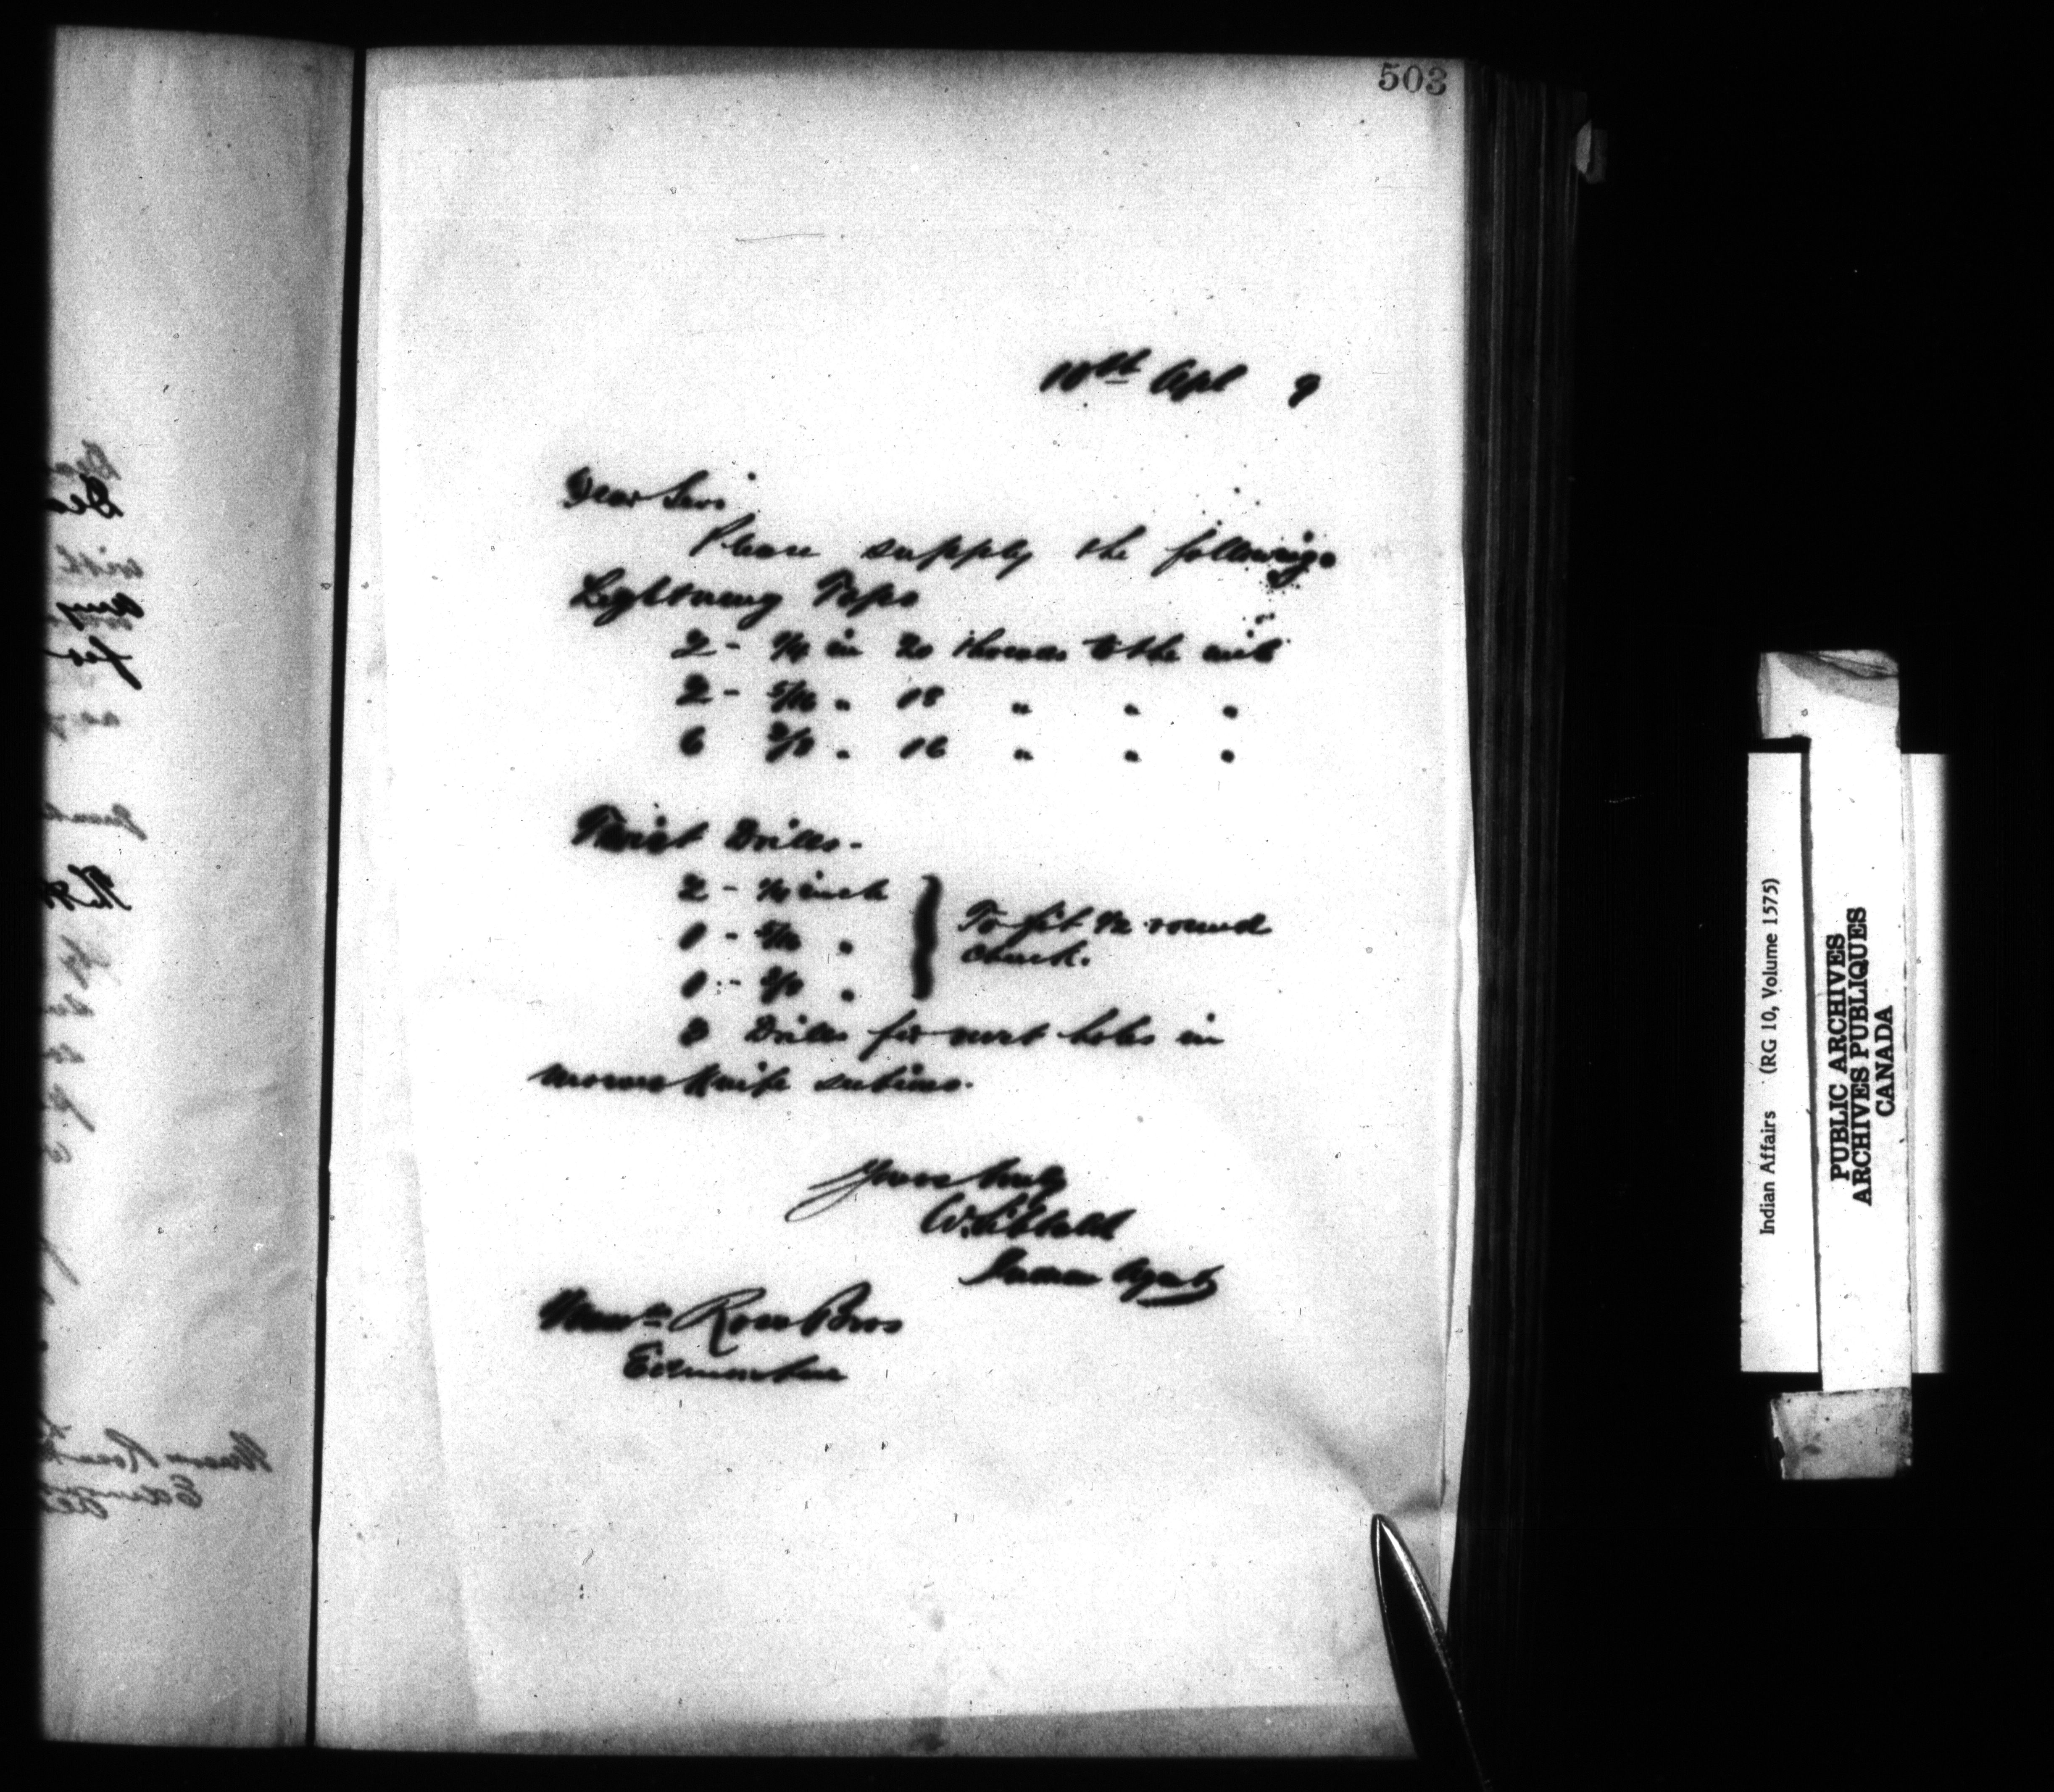 503
10th Apl 9
Dear Sirs
Please supply the following
Lightning Taps
2 - 1/4 in 20 threads to the inch
2 - 5/16 " 18 " " "
6 3/8 " 16 " " "
Twist Drills -
2 - 1/4 inch
1 - 5/16 "
1 - 3/8 "
To fit 1/2 round
chuck.
8 Drills for rivet holes in
mower knife sections.
Yours truly
W. Sibbald
Indian Agent
Messrs Ross Bros
Edmonton
Indian Affairs (RG 10, Volume 1575)
PUBLIC ARCHIVES
ARCHIVES PUBLIQUES
CANADA